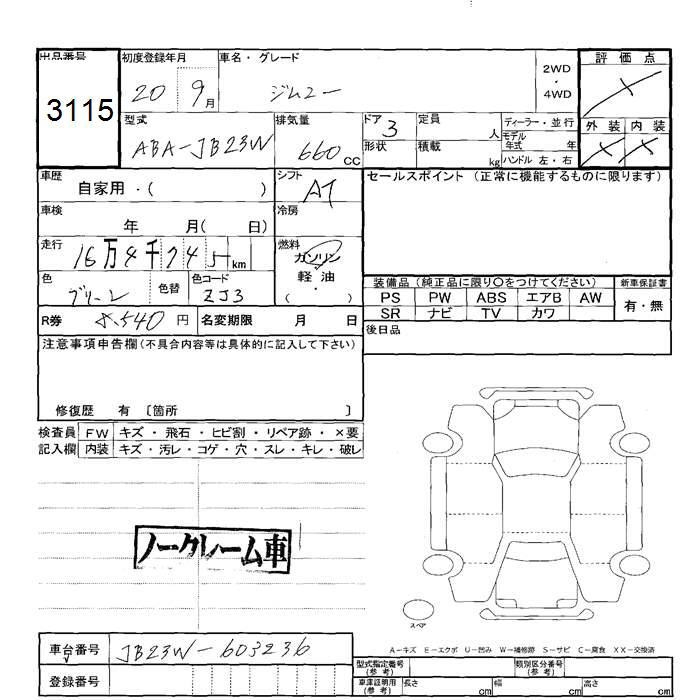 出品番号
3115
初度登録年月
20 9月
車名・グレード
ジムニー
2WD
・
4WD
評価点
外装 内装
型式
ABA-JB23W
排気量
660cc
ドア
3
形状
定員 人
積載 kg
ディーラー・並行
モデル年式 年
ハンドル 左・右
車歴
自家用・( )
シフト
AT
セールスポイント (正常に機能するものに限ります)
車検
年 月( 日)
冷房
走行
16万4千745km
燃料
ガソリン
軽・油
・
( )
色
グリーン
色替
色コード
ZJ3
装備品(純正品に限り○をつけてください)
PS PW ABS エアB AW
SR ナビ TV カワ
新車保証書
有・無
R券
8,540円
名変期限 月 日
後日品
注意事項申告欄(不具合内容等は具体的に記入して下さい)
修復歴 有 〔箇所 〕
検査員記入欄
FW キズ・飛石・ヒビ割・リペア跡・×要
内装 キズ・汚レ・コゲ・穴・スレ・キレ・破レ
ノークレーム車
スペア
A−キズ E−エクボ U−凹み W−補修跡 S−サビ C−腐食 XX−交換済
車台番号
JB23W-603236
登録番号
型式指定番号(参考)
類別区分番号(参考)
車庫証明用(参考)
長さ cm
幅 cm
高さ cm